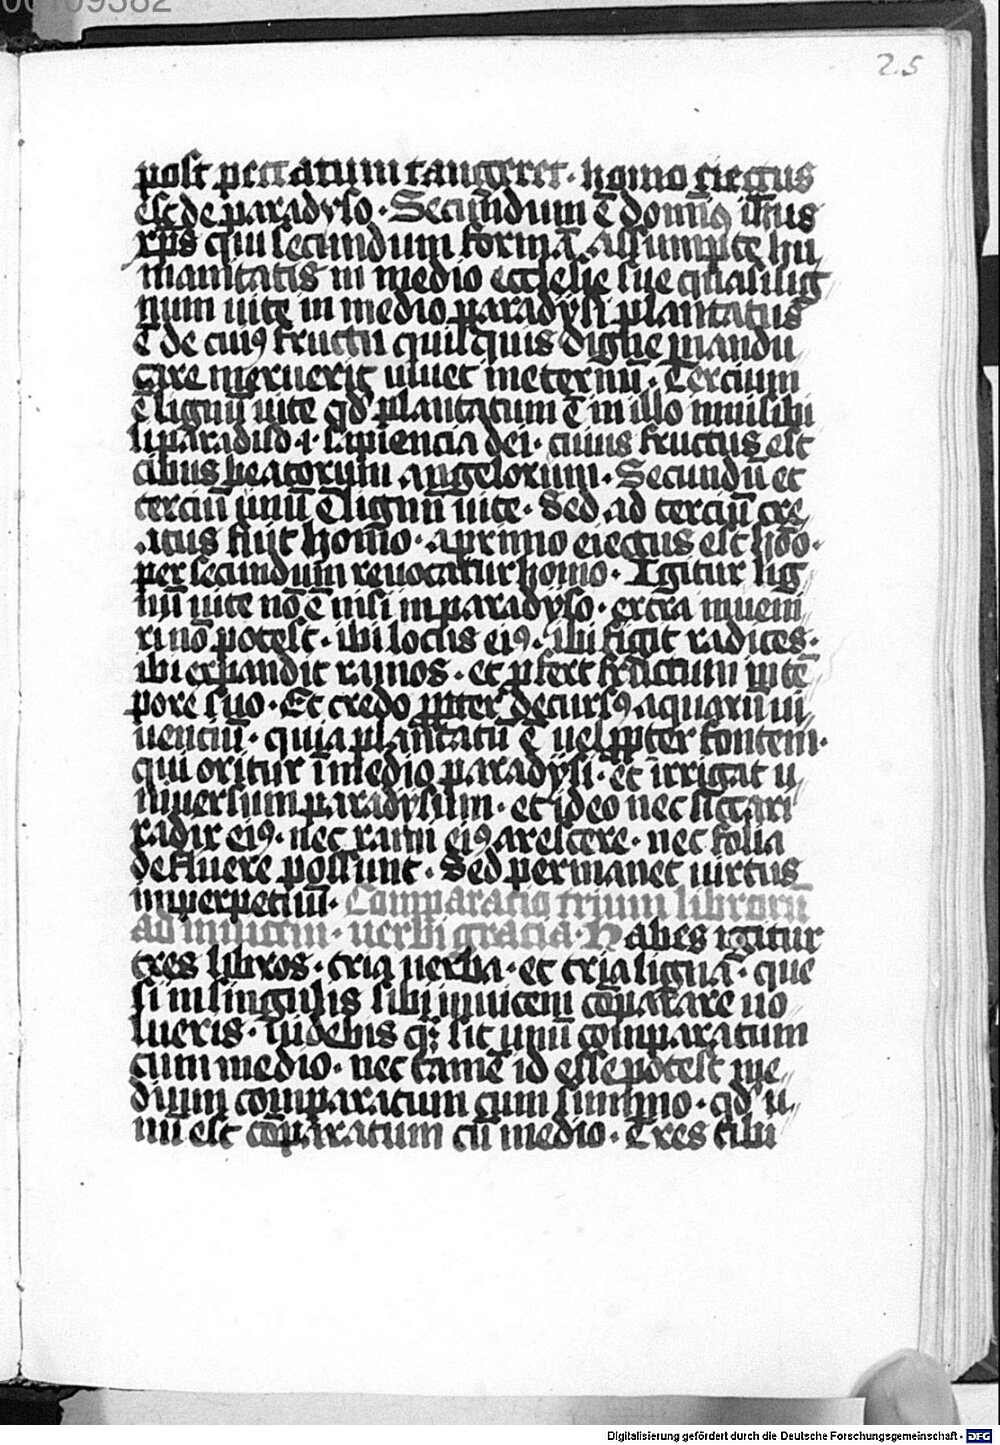 25
post peccatum tangeret · homo eiectus
est de paradyso · Secundum ē domin⁹ ih̄us
xp̄s qui secundum formā assumptę hu
manitatis in medio ecclesie sue quasi lig
num uitę in medio paradysi plantatus
ē de cui⁹ fructu quisquis digne mandu
care meruerit uiuet in eternū · Tercium
ē lignū uite qd̄ plantatum ē in illo inuisibi
li paradiso · i · sapiencia dei · cuius fructus est
cibus beatorum angelorum · Secundū et
terciū unū ē lignū uite · Sed ad terciū cre
atus fuit homo · a primo eiectus est hō ·
per secundum reuocatur homo · Igitur lig
nū uite nō ē nisi in paradyso · extra inueni
ri nō potest · ibi locus ei⁹ · ibi figit radices ·
ibi expandit ramos · et p̄fert fructum in tē
pore suo · Et credo ꝓpter decurs⁹ aquarū ui
uenciū · quia plantatū ē uel ꝓpter fontem ·
qui oritur ī medio paradysi · et irrigat u
niuersum paradysum · et ideo nec siccari
radix ei⁹ · nec rami ei⁹ arescere · nec folia
defluere possunt · Sed permanet uirtus
inperpetuū · Comparatio trium librorū
ad inuicem · uerbi gracia · Habes igitur
tres libros · tria uerba · et tria ligna · que
si in singulis sibi inuicem cōparare uo
lueris · uidebis qꝫ sic unū comparatum
cum medio · nec tamē id esse potest me
dium comparatum cum summo · qd̄ u
nū est cōparatum cū medio · Tres tibi
Digitalisierung gefördert durch die Deutsche Forschungsgemeinschaft - DFG